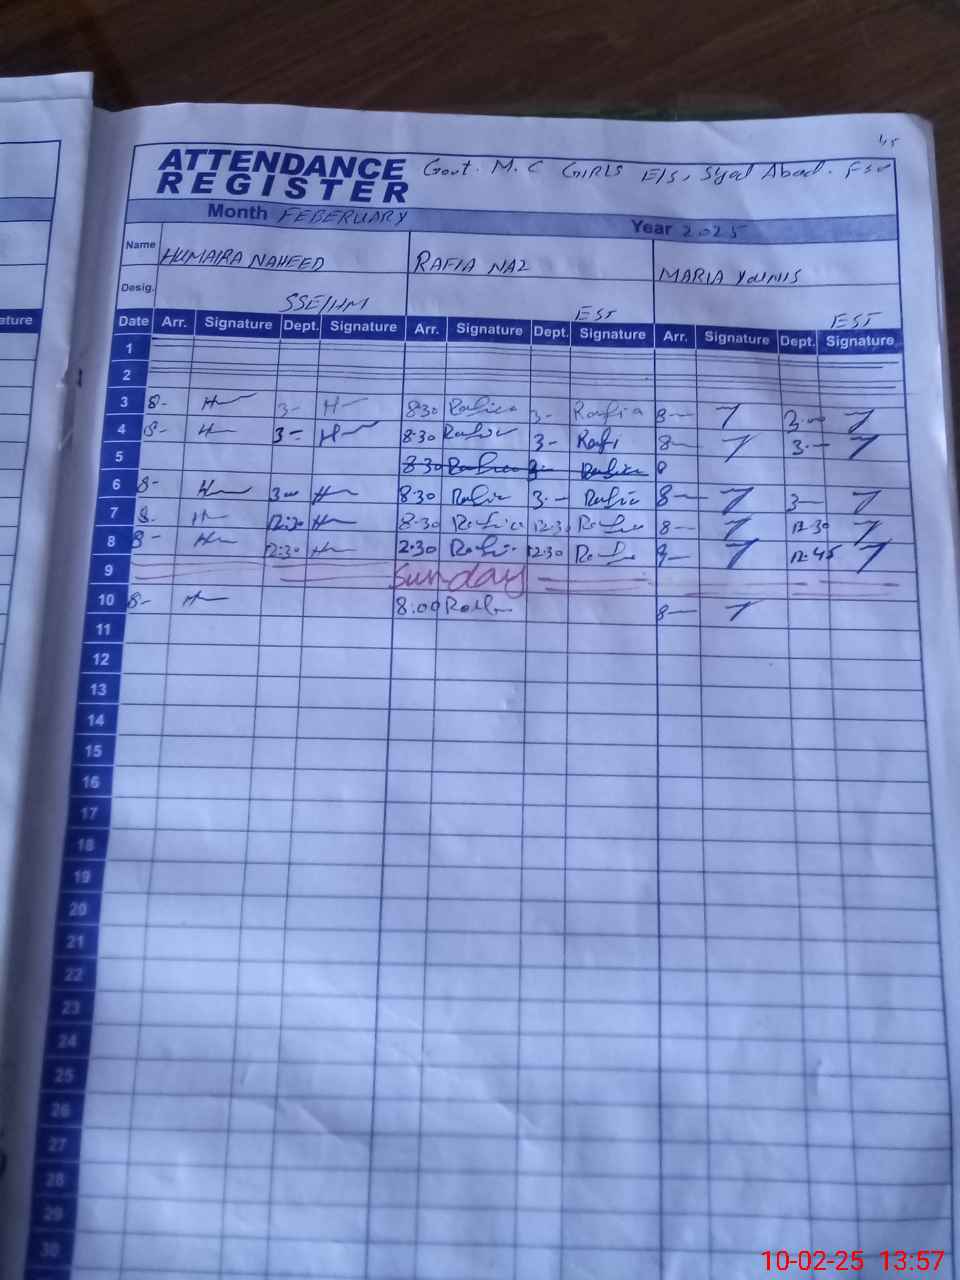 45
ATTENDANCE REGISTER Govt. M.C GIRLS E/S, Syed Abad. FSD
Month FEBERUARY Year 2025
Name HUMAIRA NAHEED RAFIA NAZ MARIA YOUNIS
Desig. SSE/HM EST EST
ature
Date Arr. Signature Dept. Signature Arr. Signature Dept. Signature Arr. Signature Dept. Signature
1
2
3 8- H 3- H 8:30 Rafia 3- Rafia 8- 3:00
4 8- H 3- H 8:30 Rafia 3- Rafi 8- 3.-
5 8:30 Rafia 3- Rafia
6 8- H 3:00 H 8:30 Rafia 3.- Rafia 8- 3-
7 8- H 12:30 H 8:30 Rafia 12:30 Rafia 8- 12:30
8 8- H 12:30 H 2:30 Rafi 12:30 8- 12:45
9 Sunday
10 8- H 8:00 8-
11
12
13
14
15
16
17
18
19
20
21
22
23
24
25
26
27
28
29
30
10-02-25 13:57